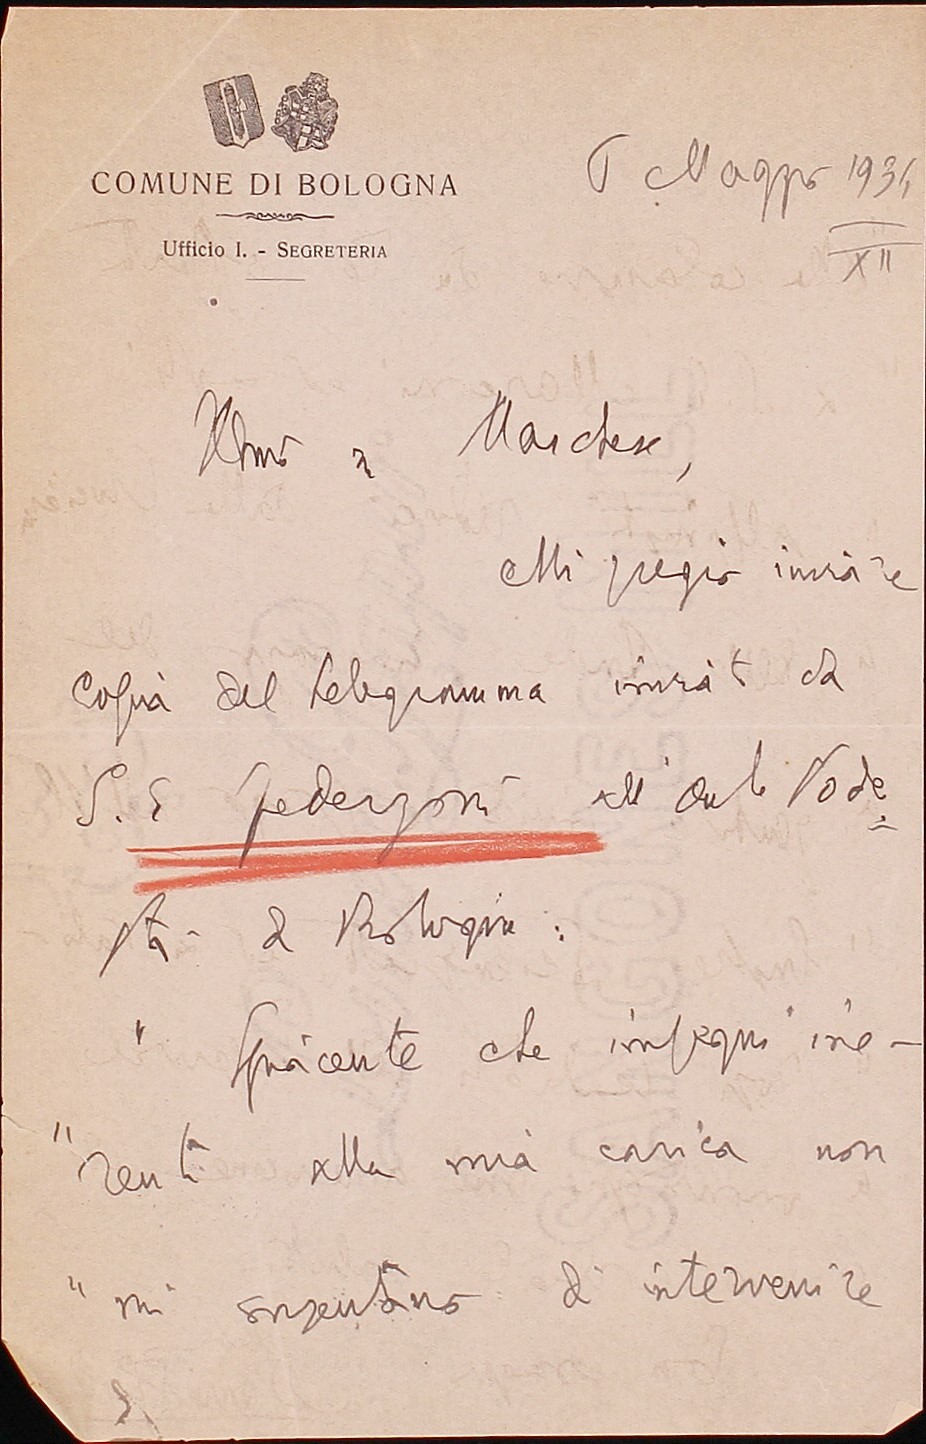 COMUNE DI BOLOGNA
Ufficio I. - SEGRETERIA
Maggio 1934
XII
Marchese,
Mi pregio inviare
copia del telegramma inviato da
S. E Federzoni all' On.le Pode=
stà di Bologna:
" Spiacente che impegni ine-
" renti alla mia carica non
" mi consentano di intervenire